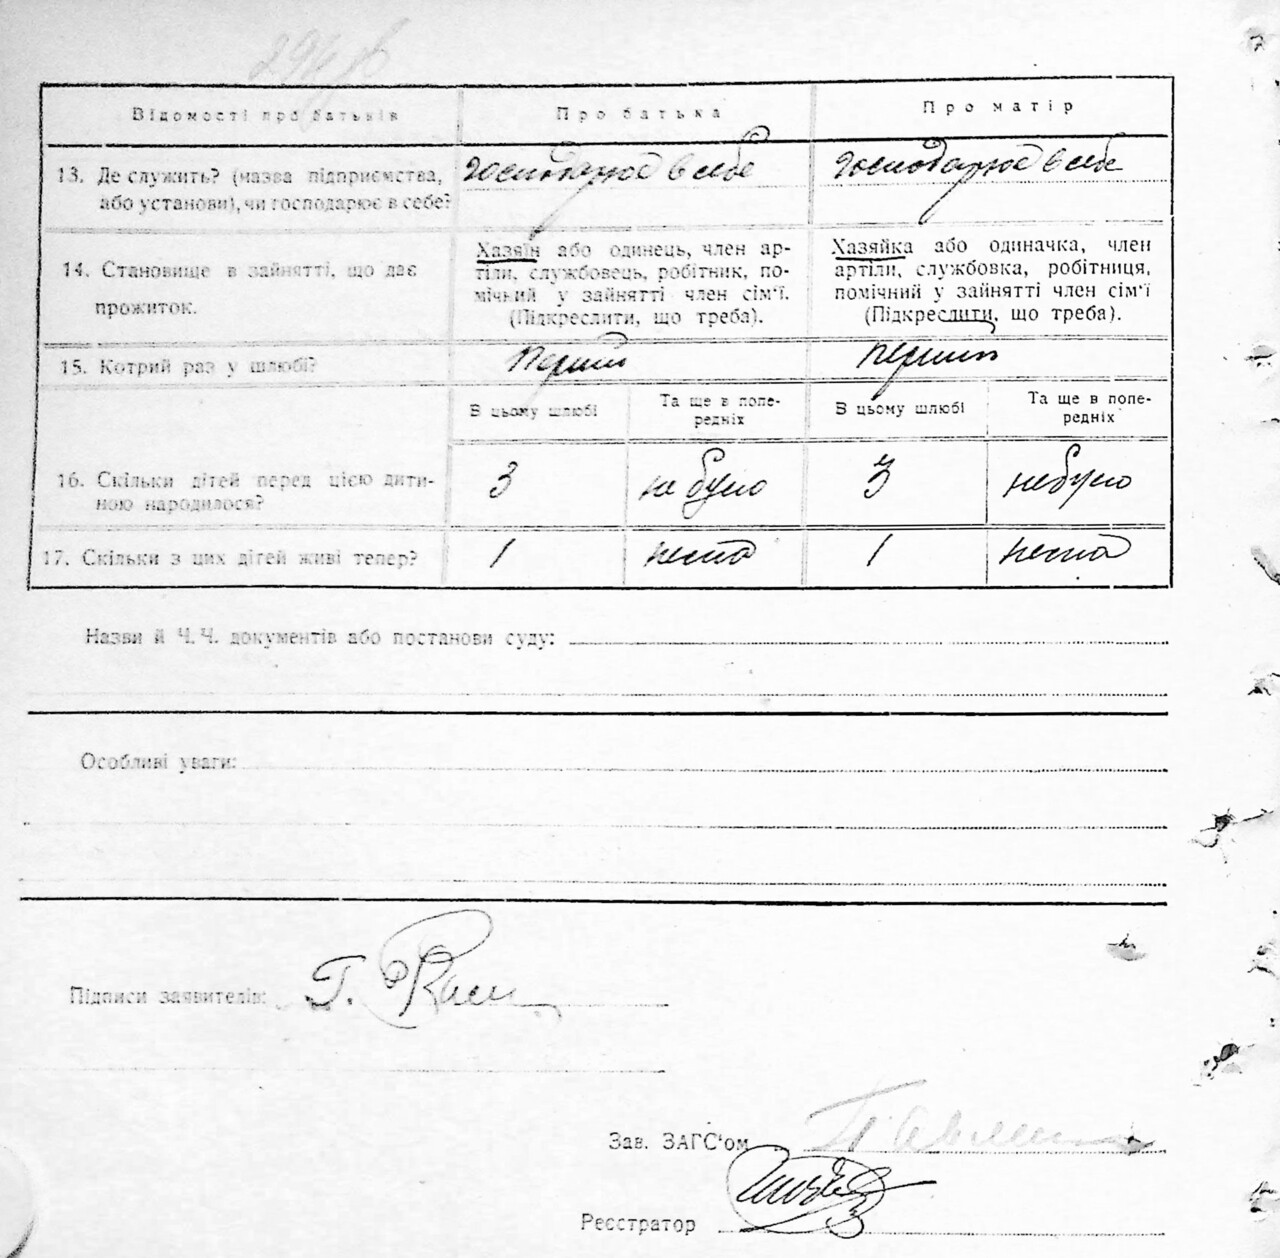 Відомості про батьків Про батька Про матір
13. Де служить? (назва підприємства, або установи), чи господарює в себе? господарює в себе господарює в себе
14. Становище в зайнятті, що дає прожиток.
Хазяїн або одинець, член ар-
тіли, службовець, робітник, по-
мічний у зайнятті член сім'ї.
(Підкреслити, що треба).
Хазяйка або одиначка, член
артіли, службовка, робітниця,
помічний у зайнятті член сім'ї
(Підкреслити, що треба).
15. Котрий раз у шлюбі? перший перший
В цьому шлюбі Та ще в попе-
редніх В цьому шлюбі Та ще в попе-
редніх
16. Скільки дітей перед цією дити-
ною народилося? 3 не було 3 не було
17. Скільки з цих дітей живі тепер? 1 нема 1 нема
Назви й Ч. Ч. документів або постанови суду:
Особливі уваги:
Підписи заявителів: Г.
Зав. ЗАГС'ом
Реєстратор